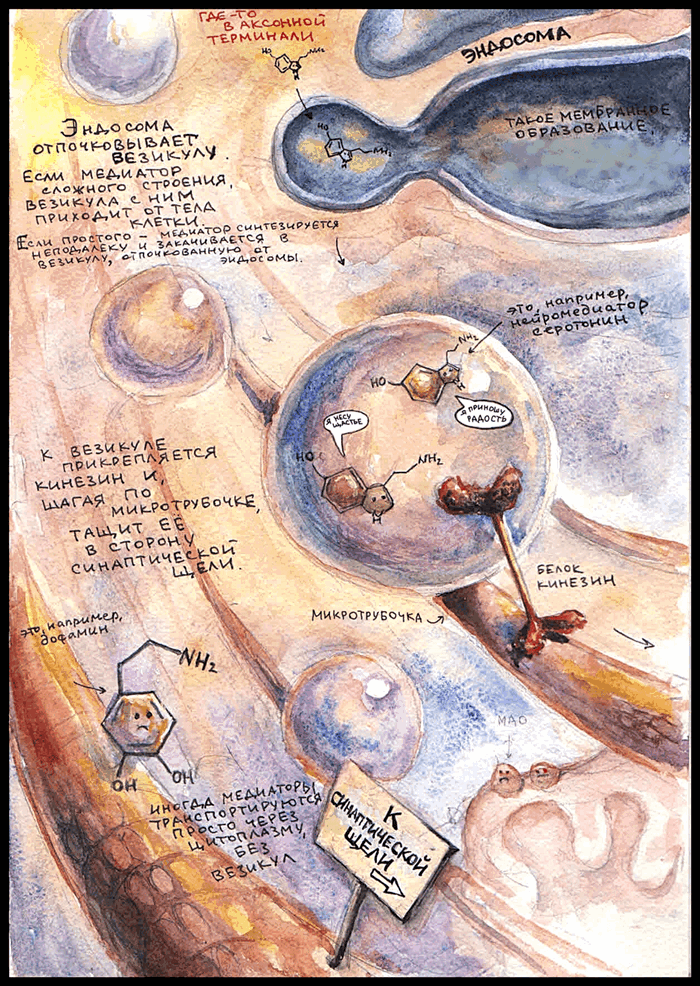 ГДЕ-ТО
В АКСОННОЙ
ТЕРМИНАЛИ
HO
NH₂
H
ЭНДОСОМА
ТАКОЕ МЕМБРАННОЕ
ОБРАЗОВАНИЕ.
HO
NH₂
H
ЭНДОСОМА
ОТПОЧКОВЫВАЕТ
ВЕЗИКУЛУ.
ЕСЛИ МЕДИАТОР
СЛОЖНОГО СТРОЕНИЯ,
ВЕЗИКУЛА С НИМ
ПРИХОДИТ ОТ ТЕЛА
КЛЕТКИ.
ЕСЛИ ПРОСТОГО – МЕДИАТОР СИНТЕЗИРУЕТСЯ
НЕПОДАЛЕКУ И ЗАКАЧИВАЕТСЯ В
ВЕЗИКУЛУ, ОТПОЧКОВАННУЮ ОТ
ЭНДОСОМЫ.
ЭТО, НАПРИМЕР,
НЕЙРОМЕДИАТОР
СЕРОТОНИН
NH₂
HO
H
Я ПРИНОШУ
РАДОСТЬ
Я НЕСУ
ЩАСТЬЕ
HO
NH₂
H
К ВЕЗИКУЛЕ
ПРИКРЕПЛЯЕТСЯ
КИНЕЗИН И,
ШАГАЯ ПО
МИКРОТРУБОЧКЕ,
ТАЩИТ ЕЁ
В СТОРОНУ
СИНАПТИЧЕСКОЙ
ЩЕЛИ.
БЕЛОК
КИНЕЗИН
МИКРОТРУБОЧКА
ЭТО, НАПРИМЕР,
ДОФАМИН
NH₂
OH
OH
МАО
ИНОГДА МЕДИАТОРЫ
ТРАНСПОРТИРУЮТСЯ
ПРОСТО ЧЕРЕЗ
ЦИТОПЛАЗМУ,
БЕЗ
ВЕЗИКУЛ
К
СИНАПТИЧЕСКОЙ
ЩЕЛИ